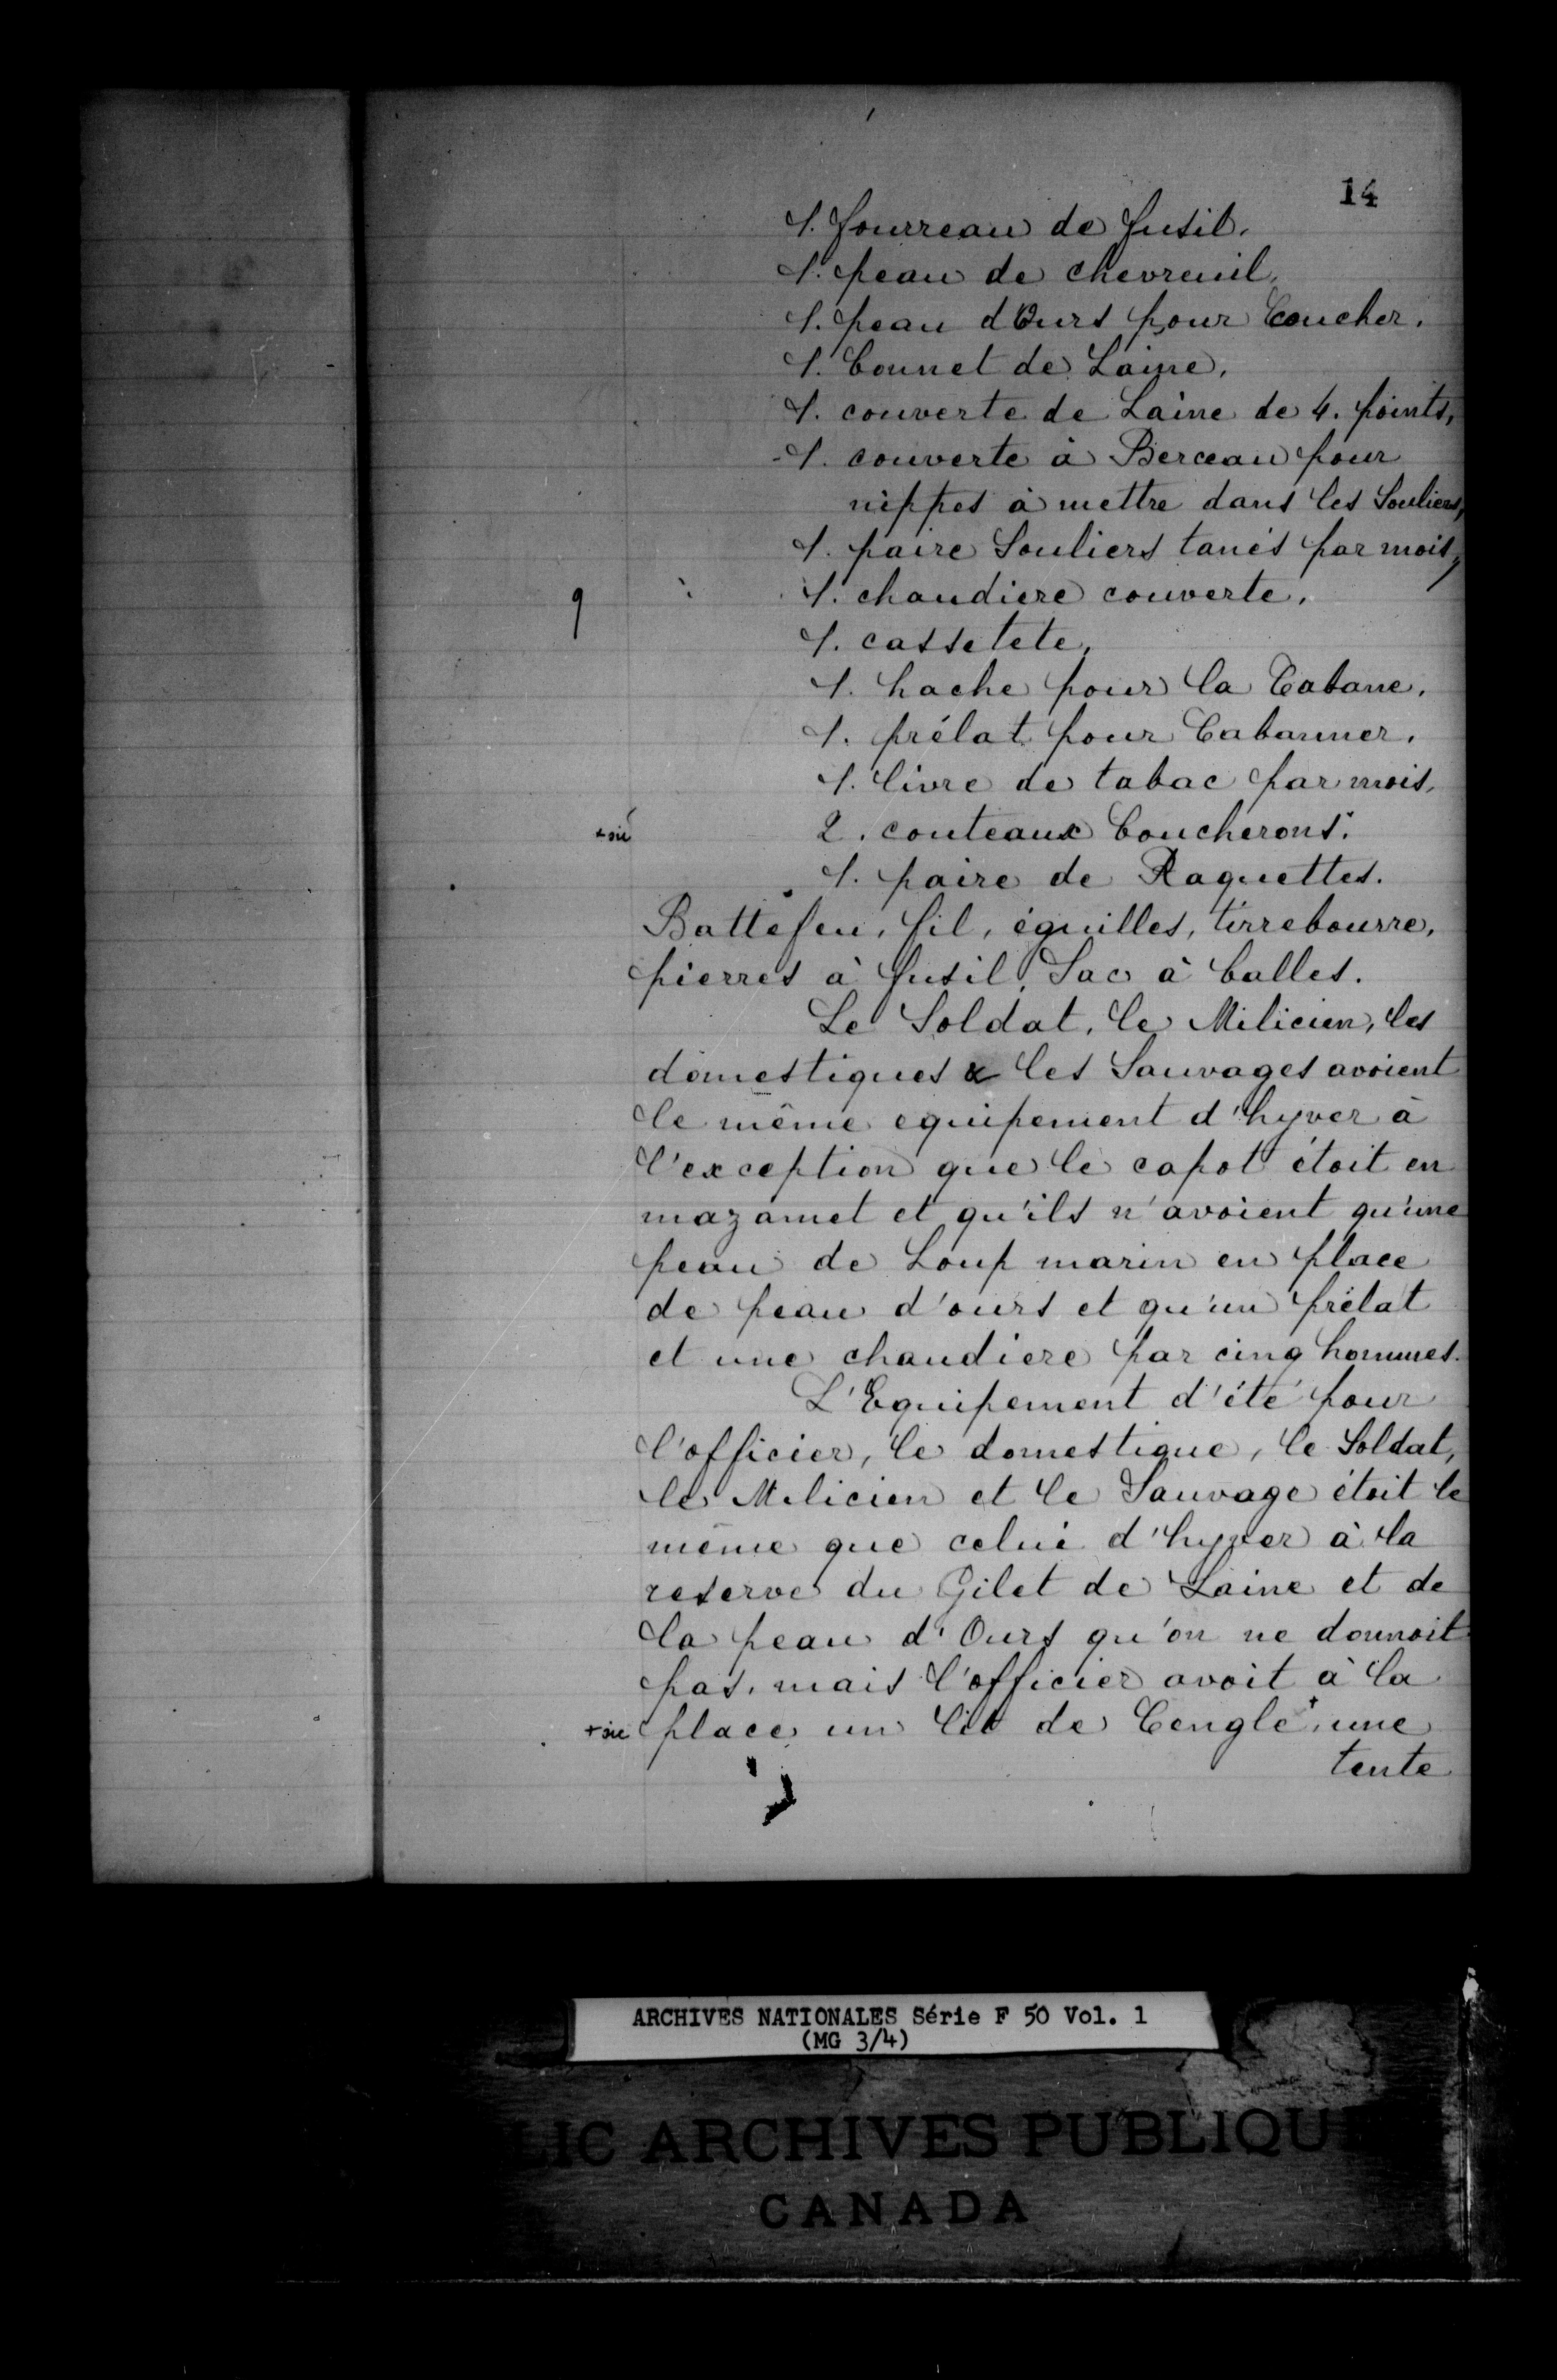 14
1. fourreau de fusil.
1. peau de chevreuil,
1. peau d'Ours pour Coucher.
1. bonnet de Laine.
1. couverte de Laine de 4. points,
1. couverte à Berceau pour
nippes à mettre dans les Souliers,
1. paire Souliers tanés par mois,
9 1. chaudiere couverte.
1. cassetete,
1. hache pour la Cabane.
1. prélat pour Cabanner.
1. livre de tabac par mois,
+ sic 2. couteaux boucherons.+
1. paire de Raquettes.
Battefeu, fil, éguilles, tirrebourre,
pierres à fusil, Sac à balles.
Le Soldat, le Milicien, les
domestiques & les Sauvages avoient
le même equipement d'hyver à
l'exception que le capot étoit en
mazamet et qu'ils n'avoient qu'une
peau de Loup marin en place
de peau d'ours et qu'un prélat
et une chaudiere par cinq hommes.
L'Equipement d'été pour
l'officier, le domestique, le Soldat,
le Milicien et le Sauvage étoit le
même que celui d'hyver à la
reserve du Gilet de Laine et de
la peau d'Ours qu'on ne donnoit
pas, mais l'officier avoit à la
+ sic place un lit de Cengle+, une
tente
ARCHIVES NATIONALES Série F 50 Vol. 1
(MG 3/4)
LIC ARCHIVES PUBLIQU
CANADA